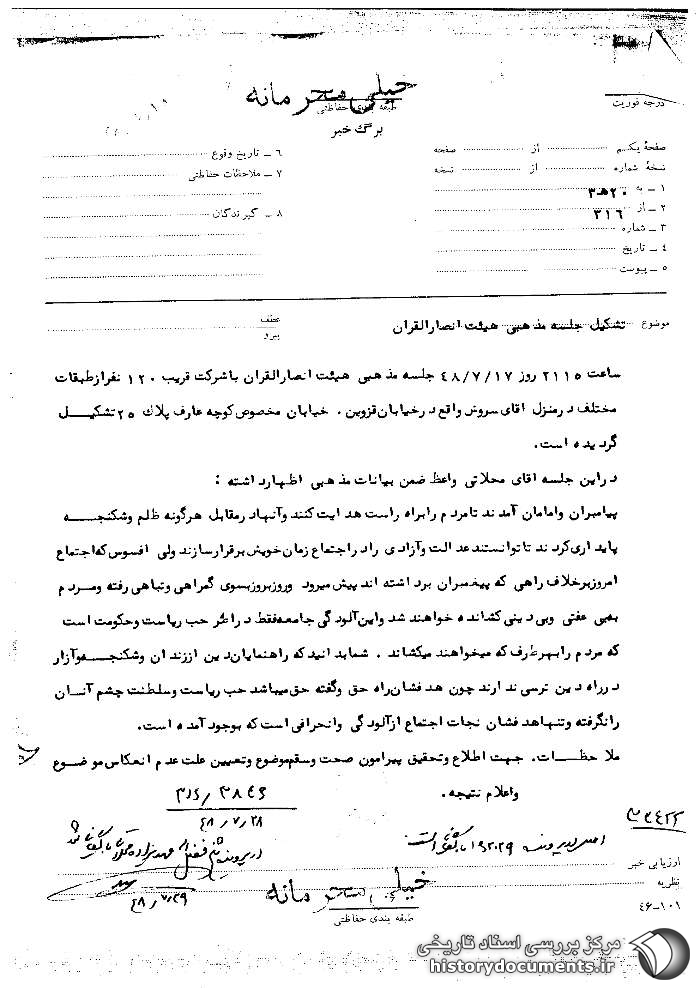 خیلی محرمانه
طبقه بندی حفاظتی
برگ خبر
درجه فوریت
صفحهٔ یکم از صفحه
نسخهٔ شماره از نسخه
۱ ـ به ۲۰ هـ ۳
۲ ـ از ۳۱۶
۳ ـ شماره
۴ ـ تاریخ
۵ ـ پیوست
۶ ـ تاریخ وقوع
۷ ـ ملاحظات حفاظتی
۸ ـ گیرندگان
موضوع تشکیل جلسه مذهبی هیئت انصارالقران
عطف
پیرو
ساعت ۲۱۱۵ روز ۴۸/۷/۱۷ جلسه مذهبی هیئت انصارالقران باشرکت قریب ۱۲۰ نفرازطبقات
مختلف درمنزل اقای سروش واقع درخیابان قزوین . خیابان مخصوص کوچه عارف پلاک ۲۵ تشکیل
گردیده است.
دراین جلسه اقای محلاتی واعظ ضمن بیانات مذهبی اظهارداشته :
پیامبران وامامان آمدند تامردم رابراه راست هدایت کنند وآنهادرمقابل هرگونه ظلم وشکنجه
پایداری کردند تاتوانستند عدالت وآزادی رادراجتماع زمان خویش برقرارسازند ولی افسوس که اجتماع
امروزبرخلاف راهی که پیغمبران برداشته اند پیش میرود وروزبروزبسوی گمراهی وتباهی رفته ومردم
به بی عفتی وبی دینی کشانده خواهند شد واین آلودگی جامعه فقط دراثر حب ریاست وحکومت است
که مردم رابهرطرف که میخواهند میکشاند . شمابدانید که راهنمایان دین اززندان وشکنجه وآزار
درراه دین ترسی ندارند چون هدفشان راه حق وگفته حق میباشد حب ریاست وسلطنت چشم آنسان
رانگرفته وتنهاهدفشان نجات اجتماع ازآلودگی وانحرافی است که بوجود آمده است.
ملاحظات. جهت اطلاع وتحقیق پیرامون صحت وسقم موضوع وتعیین علت عدم انعکاس موضوع
واعلام نتیجه.
۴۸/۷/۲۸
۴۸/۷/۲۹
ارزیابی خبر
نظریه
۴۶-۱۰۱
خیلی محرمانه
طبقه بندی حفاظتی
مرکز بررسی اسناد تاریخی
historydocuments.ir